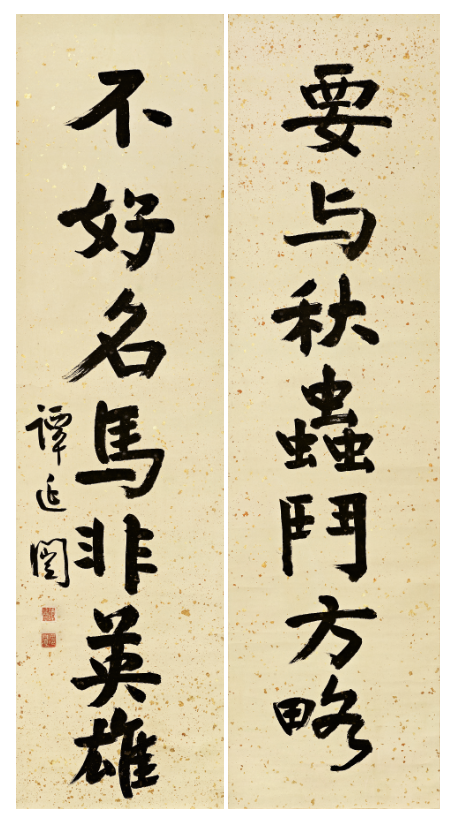 要与秋蟲鬥方略
不好名馬非英雄
譚延闓